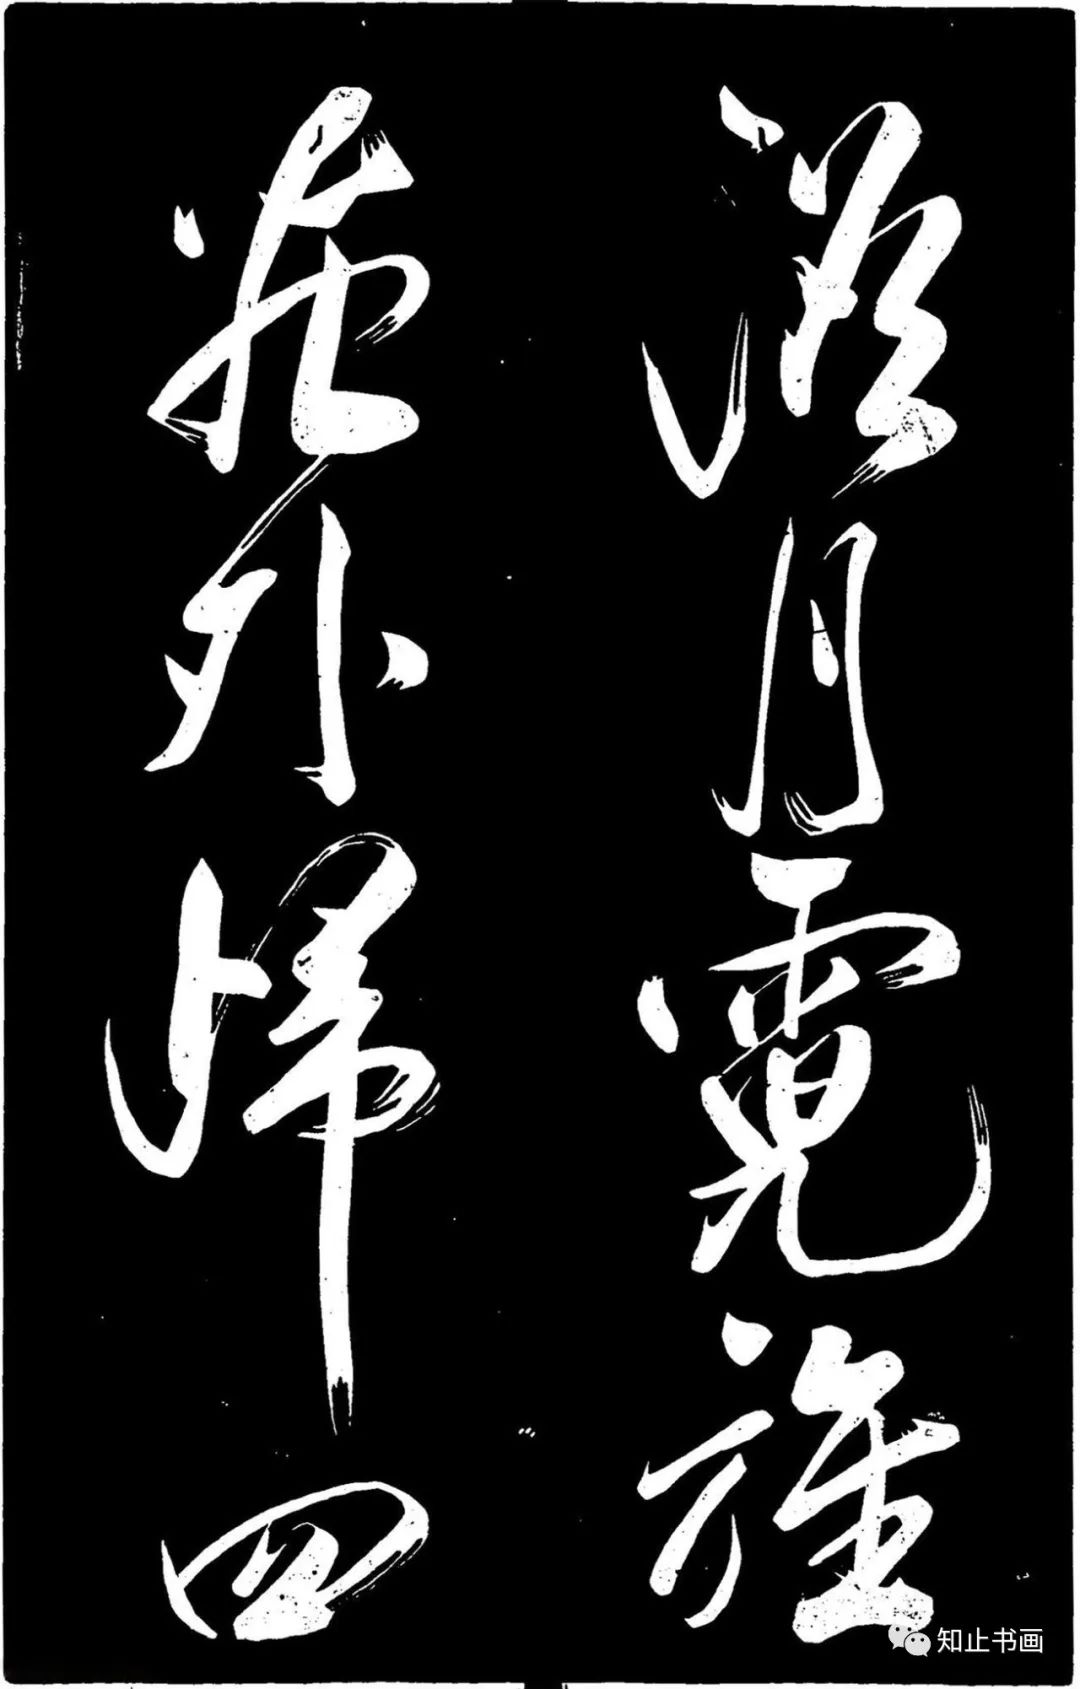 月霓旌
外歸四
知止书画